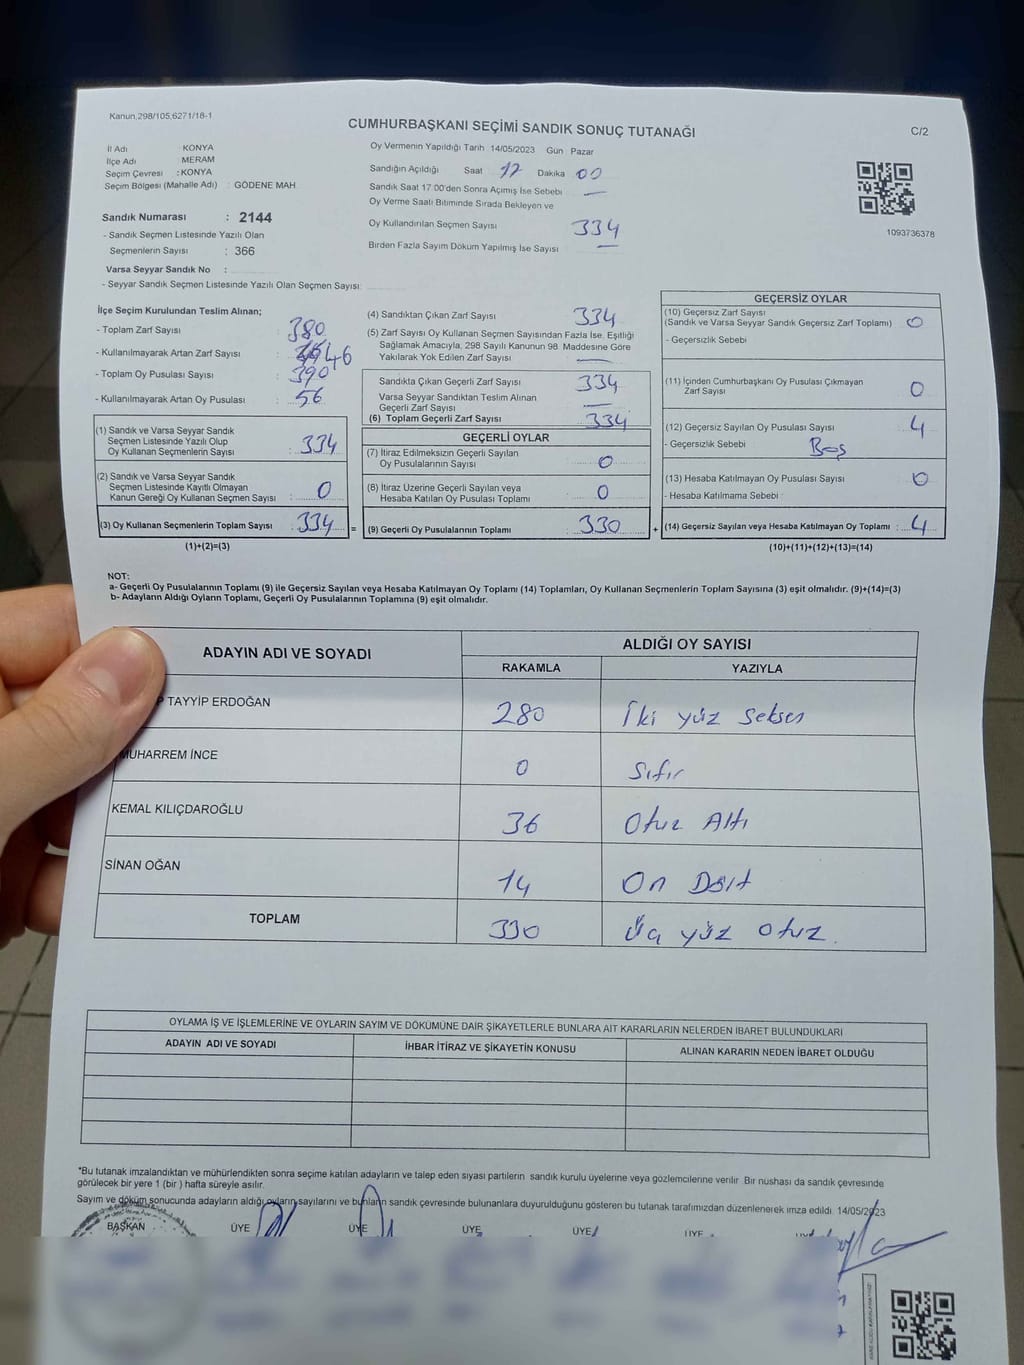 Kanun,298/105,6271/18-1
CUMHURBAŞKANI SEÇİMİ SANDIK SONUÇ TUTANAĞI
C/2
İl Adı : KONYA
İlçe Adı : MERAM
Seçim Çevresi : KONYA
Seçim Bölgesi (Mahalle Adı) : GÖDENE MAH.
Sandık Numarası : 2144
- Sandık Seçmen Listesinde Yazılı Olan
Seçmenlerin Sayısı : 366
Varsa Seyyar Sandık No :
- Seyyar Sandık Seçmen Listesinde Yazılı Olan Seçmen Sayısı:
Oy Vermenin Yapıldığı Tarih 14/05/2023 Gün Pazar
Sandığın Açıldığı Saat 17 Dakika 00
Sandık Saat 17.00'den Sonra Açımış İse Sebebi —
Oy Verme Saati Bitiminde Sırada Bekleyen ve
Oy Kullandırılan Seçmen Sayısı 334
Birden Fazla Sayım Döküm Yapılmış İse Sayısı —
1093736378
İlçe Seçim Kurulundan Teslim Alınan;
- Toplam Zarf Sayısı : 380
- Kullanılmayarak Artan Zarf Sayısı : 46
- Toplam Oy Pusulası Sayısı : 390
- Kullanılmayarak Artan Oy Pusulası : 56
(1) Sandık ve Varsa Seyyar Sandık
Seçmen Listesinde Yazılı Olup
Oy Kullanan Seçmenlerin Sayısı : 334
(2) Sandık ve Varsa Seyyar Sandık
Seçmen Listesinde Kayıtlı Olmayan
Kanun Gereği Oy Kullanan Seçmen Sayısı : 0
(3) Oy Kullanan Seçmenlerin Toplam Sayısı : 334 =
(1)+(2)=(3)
(4) Sandıktan Çıkan Zarf Sayısı 334
(5) Zarf Sayısı Oy Kullanan Seçmen Sayısından Fazla İse, Eşitliği
Sağlamak Amacıyla, 298 Sayılı Kanunun 98. Maddesine Göre
Yakılarak Yok Edilen Zarf Sayısı —
Sandıkta Çıkan Geçerli Zarf Sayısı 334
Varsa Seyyar Sandıktan Teslim Alınan
Geçerli Zarf Sayısı —
(6) Toplam Geçerli Zarf Sayısı 334
GEÇERLİ OYLAR
(7) İtiraz Edilmeksizin Geçerli Sayılan
Oy Pusulalarının Sayısı 0
(8) İtiraz Üzerine Geçerli Sayılan veya
Hesaba Katılan Oy Pusulası Toplamı 0
(9) Geçerli Oy Pusulalarının Toplamı 330 +
GEÇERSİZ OYLAR
(10) Geçersiz Zarf Sayısı
(Sandık ve Varsa Seyyar Sandık Geçersiz Zarf Toplamı) 0
- Geçersizlik Sebebi
(11) İçinden Cumhurbaşkanı Oy Pusulası Çıkmayan
Zarf Sayısı 0
(12) Geçersiz Sayılan Oy Pusulası Sayısı 4
- Geçersizlik Sebebi Boş
(13) Hesaba Katılmayan Oy Pusulası Sayısı 0
- Hesaba Katılmama Sebebi
(14) Geçersiz Sayılan veya Hesaba Katılmayan Oy Toplamı : 4
(10)+(11)+(12)+(13)=(14)
NOT:
a- Geçerli Oy Pusulalarının Toplamı (9) ile Geçersiz Sayılan veya Hesaba Katılmayan Oy Toplamı (14) Toplamları, Oy Kullanan Seçmenlerin Toplam Sayısına (3) eşit olmalıdır. (9)+(14)=(3)
b- Adayların Aldığı Oyların Toplamı, Geçerli Oy Pusulalarının Toplamına (9) eşit olmalıdır.
ADAYIN ADI VE SOYADI
ALDIĞI OY SAYISI
RAKAMLA YAZIYLA
P TAYYİP ERDOĞAN 280 İki yüz seksen
MUHARREM İNCE 0 Sıfır
KEMAL KILIÇDAROĞLU 36 Otuz Altı
SİNAN OĞAN 14 On Dört
TOPLAM 330 Üç yüz otuz.
OYLAMA İŞ VE İŞLEMLERİNE VE OYLARIN SAYIM VE DÖKÜMÜNE DAİR ŞİKAYETLERLE BUNLARA AİT KARARLARIN NELERDEN İBARET BULUNDUKLARI
ADAYIN ADI VE SOYADI İHBAR İTİRAZ VE ŞİKAYETİN KONUSU ALINAN KARARIN NEDEN İBARET OLDUĞU
*Bu tutanak imzalandıktan ve mühürlendikten sonra seçime katılan adayların ve talep eden siyasi partilerin sandık kurulu üyelerine veya gözlemcilerine verilir. Bir nüshası da sandık çevresinde
görülecek bir yere 1 (bir) hafta süreyle asılır.
Sayım ve döküm sonucunda adayların aldığı oyların sayılarını ve bunların sandık çevresinde bulunanlara duyurulduğunu gösteren bu tutanak tarafımızdan düzenlenerek imza edildi. 14/05/2023
BAŞKAN ÜYE ÜYE ÜYE ÜYE ÜYE